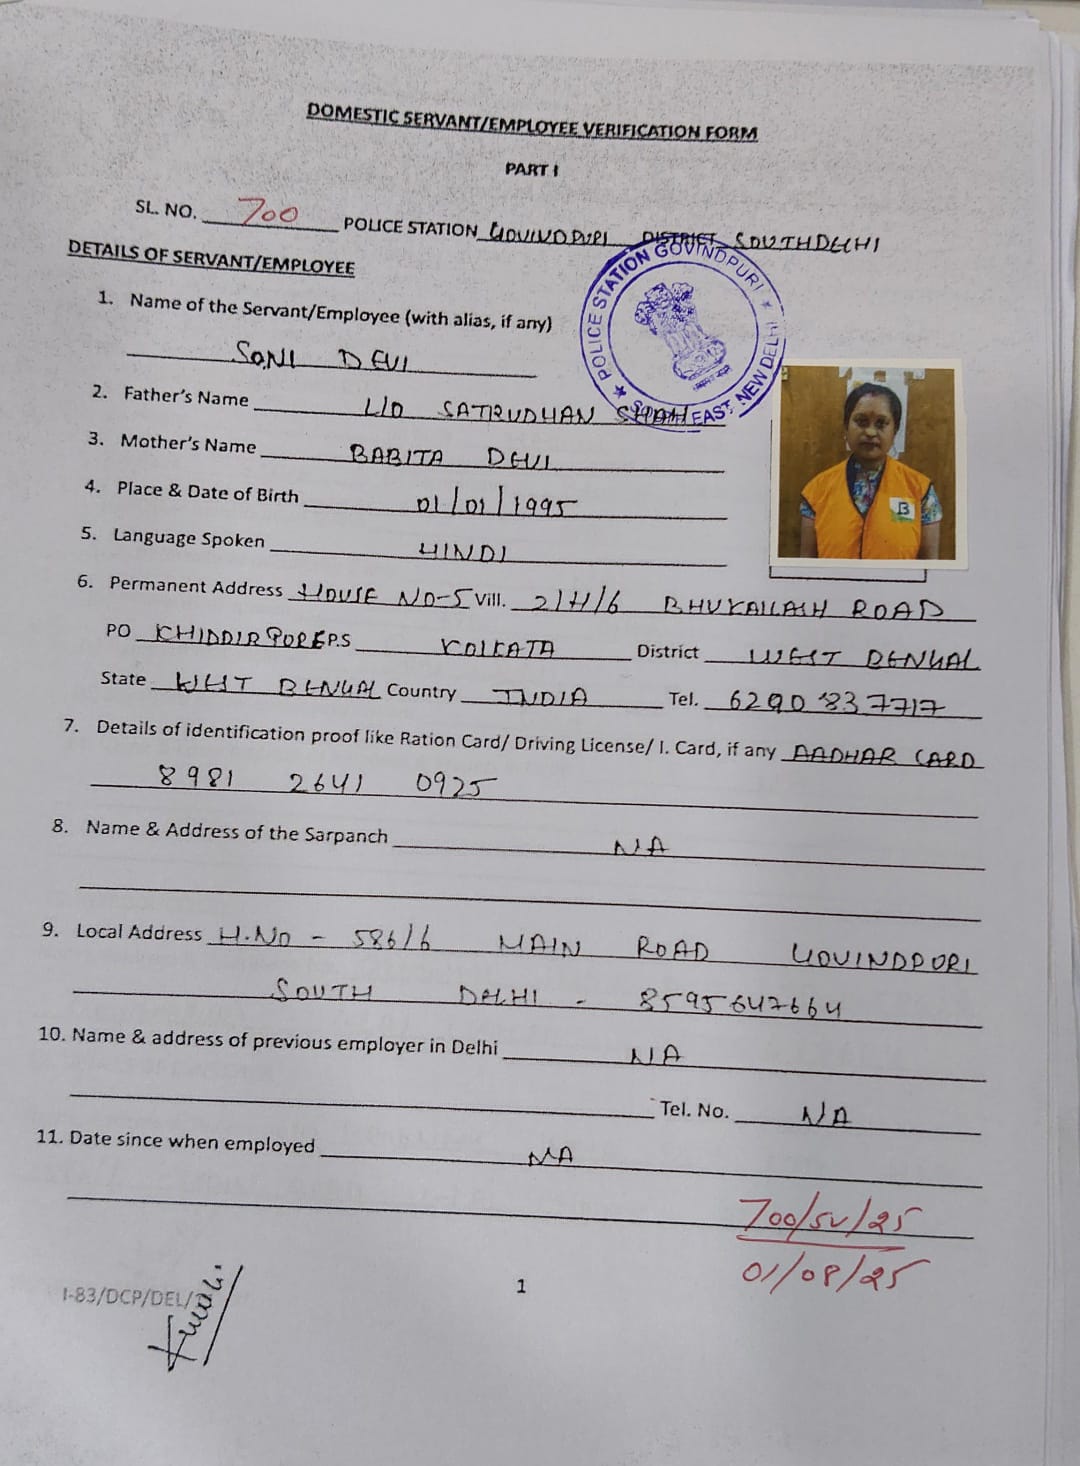 DOMESTIC SERVANT/EMPLOYEE VERIFICATION FORM
PART I
SL. NO. 700 POLICE STATION GOVINDPURI DISTRICT SOUTH DELHI
POLICE STATION GOVINDPURI
SOUTH EAST, NEW DELHI
DETAILS OF SERVANT/EMPLOYEE
1. Name of the Servant/Employee (with alias, if any)
SONI DEVI
2. Father's Name L/O SATRUDHAN SHAH
3. Mother's Name BABITA DEVI
4. Place & Date of Birth 01/01/1995
B
5. Language Spoken HINDI
6. Permanent Address HOUSE NO-5 Vill. 21H/6 BHUKAILASH ROAD
PO KHIDDIRPORE P.S KOLKATA District WEST BENGAL
State WEST BENGAL Country INDIA Tel. 6290837717
7. Details of identification proof like Ration Card/ Driving License/ I. Card, if any AADHAR CARD
8981 2641 0925
8. Name & Address of the Sarpanch NA
9. Local Address H.NO - 586/6 MAIN ROAD GOVINDPURI
SOUTH DELHI - 8595647664
10. Name & address of previous employer in Delhi NA
Tel. No. NA
11. Date since when employed NA
700/SV/25
01/08/25
1
I-83/DCP/DEL/